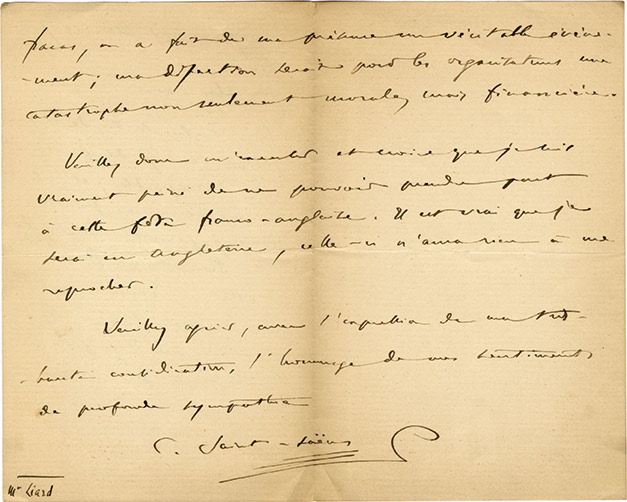 fracas, on a fait de ma présence un véritable événe-
ment ; ma défection serait pour les organisateurs une
catastrophe non seulement morale, mais financière.
Veuillez donc m'excuser et croire que je suis
vraiment peiné de ne pouvoir prendre part
à cette fête franco-anglaise. Il est vrai que je
serai en Angleterre, celle-ci n'aura rien à me
reprocher.
Veuillez agréer, avec l'expression de ma très
haute considération, l'hommage de mes sentiments
de profonde sympathie
C. Saint-Saëns
Mr Liard